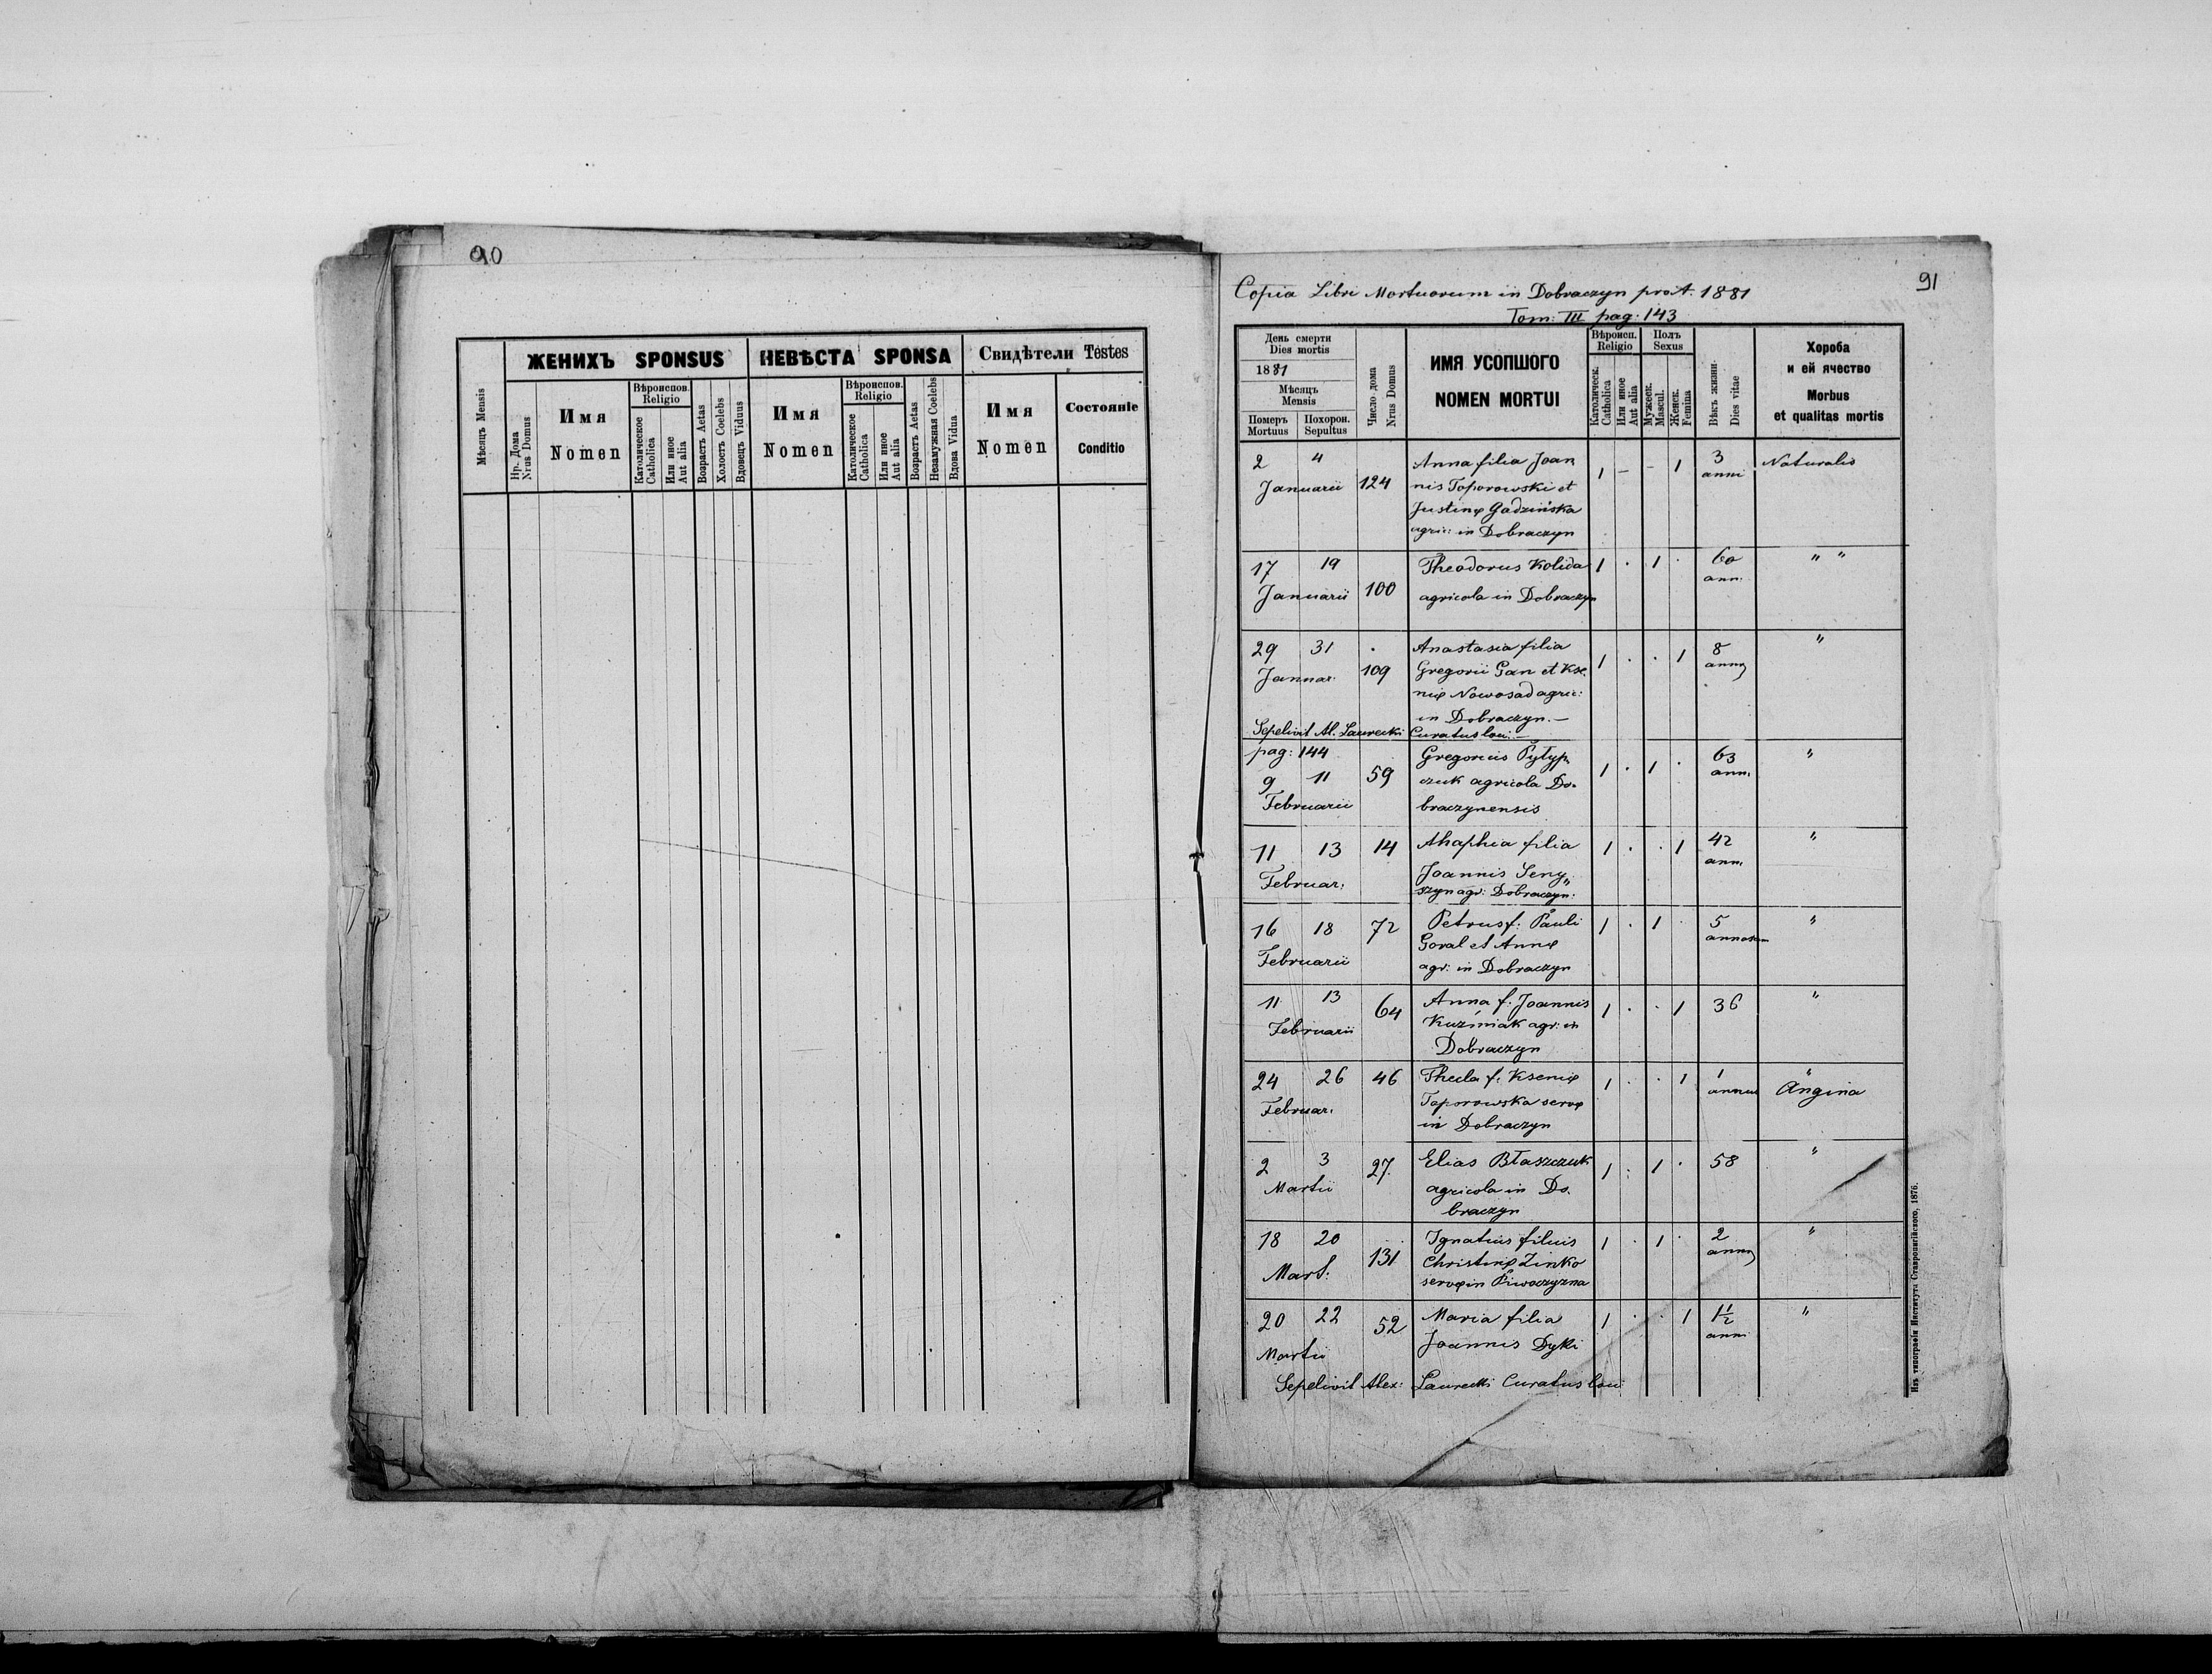 90
ЖЕНИХЪ SPONSUS
НЕВѢСТА SPONSA
Свидѣтели Testes
Мѣсяцъ Mensis
Нр. Дома
Nrus Domus
Имя
Nomen
Вѣроиспов.
Religio
Католическое
Catholica
Или иное
Aut alia
Возрастъ Aetas
Холостъ Coelebs
Вдовецъ Viduus
Имя
Nomen
Вѣроиспов.
Religio
Католическое
Catholica
Или иное
Aut alia
Возрастъ Aetas
Незамужная Coelebs
Вдова Vidua
Имя
Nomen
Состояніе
Conditio
91
Copia Libri Mortuorum in Dobraczyn pro A. 1881
Tom: III pag: 143
День смерти
Dies mortis
1881
Мѣсяцъ
Mensis
Померъ
Mortuus
Похорон.
Sepultus
Число дома
Nrus Domus
ИМЯ УСОПШОГО
NOMEN MORTUI
Вѣроисп.
Religio
Католическ.
Catholica
Или иное
Aut alia
Полъ
Sexus
Мужеск.
Mascul.
Женск.
Femina
Вѣкъ жизни
Dies vitae
Хороба
и ей ячество
Morbus
et qualitas mortis
2 4 Anna filia Joan 1 - - 1 3 Naturalis
Januarii 124 nis Toporowski et anni
Justinę Gadzińska
agric: in Dobraczyn
17 19 Theodorus Kolida 1 . 1 . 60 " "
Januarii 100 agricola in Dobraczyn ann.
29 31 Anastasia filia 8 "
Januar. 109 Gregorii Gan et Kse- 1 . . 1 anno
nię Nowosad agric:
in Dobraczyn. —
Sepelivit Al. Laurecki Curatus loci —
pag: 144 Gregorius Pyłyp- 63 "
9 11 59 czuk agricola Do- 1 . 1 . ann.
Februarii braczynensis
11 13 14 Ahaphia filia 1 . . 1 42 "
Februar: Joannis Seny„ ann.
szyn agr: Dobraczyn:
16 18 72 Petrus f: Pauli 1 . 1 . 5 "
Februarii Goral et Annę annorum
agr: in Dobraczyn
11 13 64 Anna f: Joannis 1 . . 1 36 "
Februarii Kuźniak agr: in
Dobraczyn
24 26 46 Thecla f: Ksenię 1 . . 1 1 "
Februar. Toporowska servę annus Angina
in Dobraczyn
2 3 27. Elias Błaszczuk 1 . 1 . 58 "
Martii agricola in Do-
braczyn
18 20 131 Ignatius filius 1 . 1 . 2 "
Mart: Christinę Zinko anno
servę in Piwoczyzna
20 22 52 Maria filia 1 . . 1 1½ "
Martii Joannis Dyki anni
Sepelivit Alex: Laurecki Curatus loci
Изъ типографіи Института Ставропигійского, 1876.